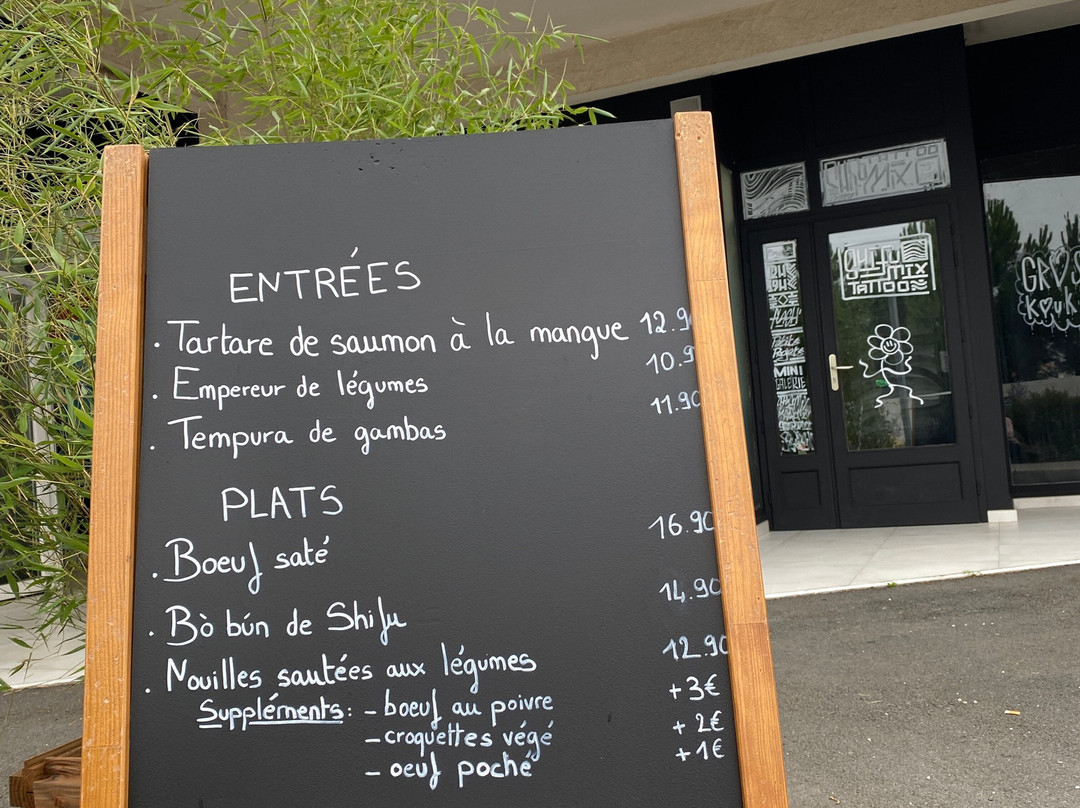 ENTRÉES
. Tartare de saumon à la mangue 12.9
. Empereur de légumes 10.9
. Tempura de gambas 11.90
PLATS
. Boeuf saté 16.90
. Bò bún de Shifu 14.90
. Nouilles sautées aux légumes 12.90
Suppléments: - boeuf au poivre +3€
- croquettes végé +2€
- oeuf poché +1€
MIX
TATTOO
MINI